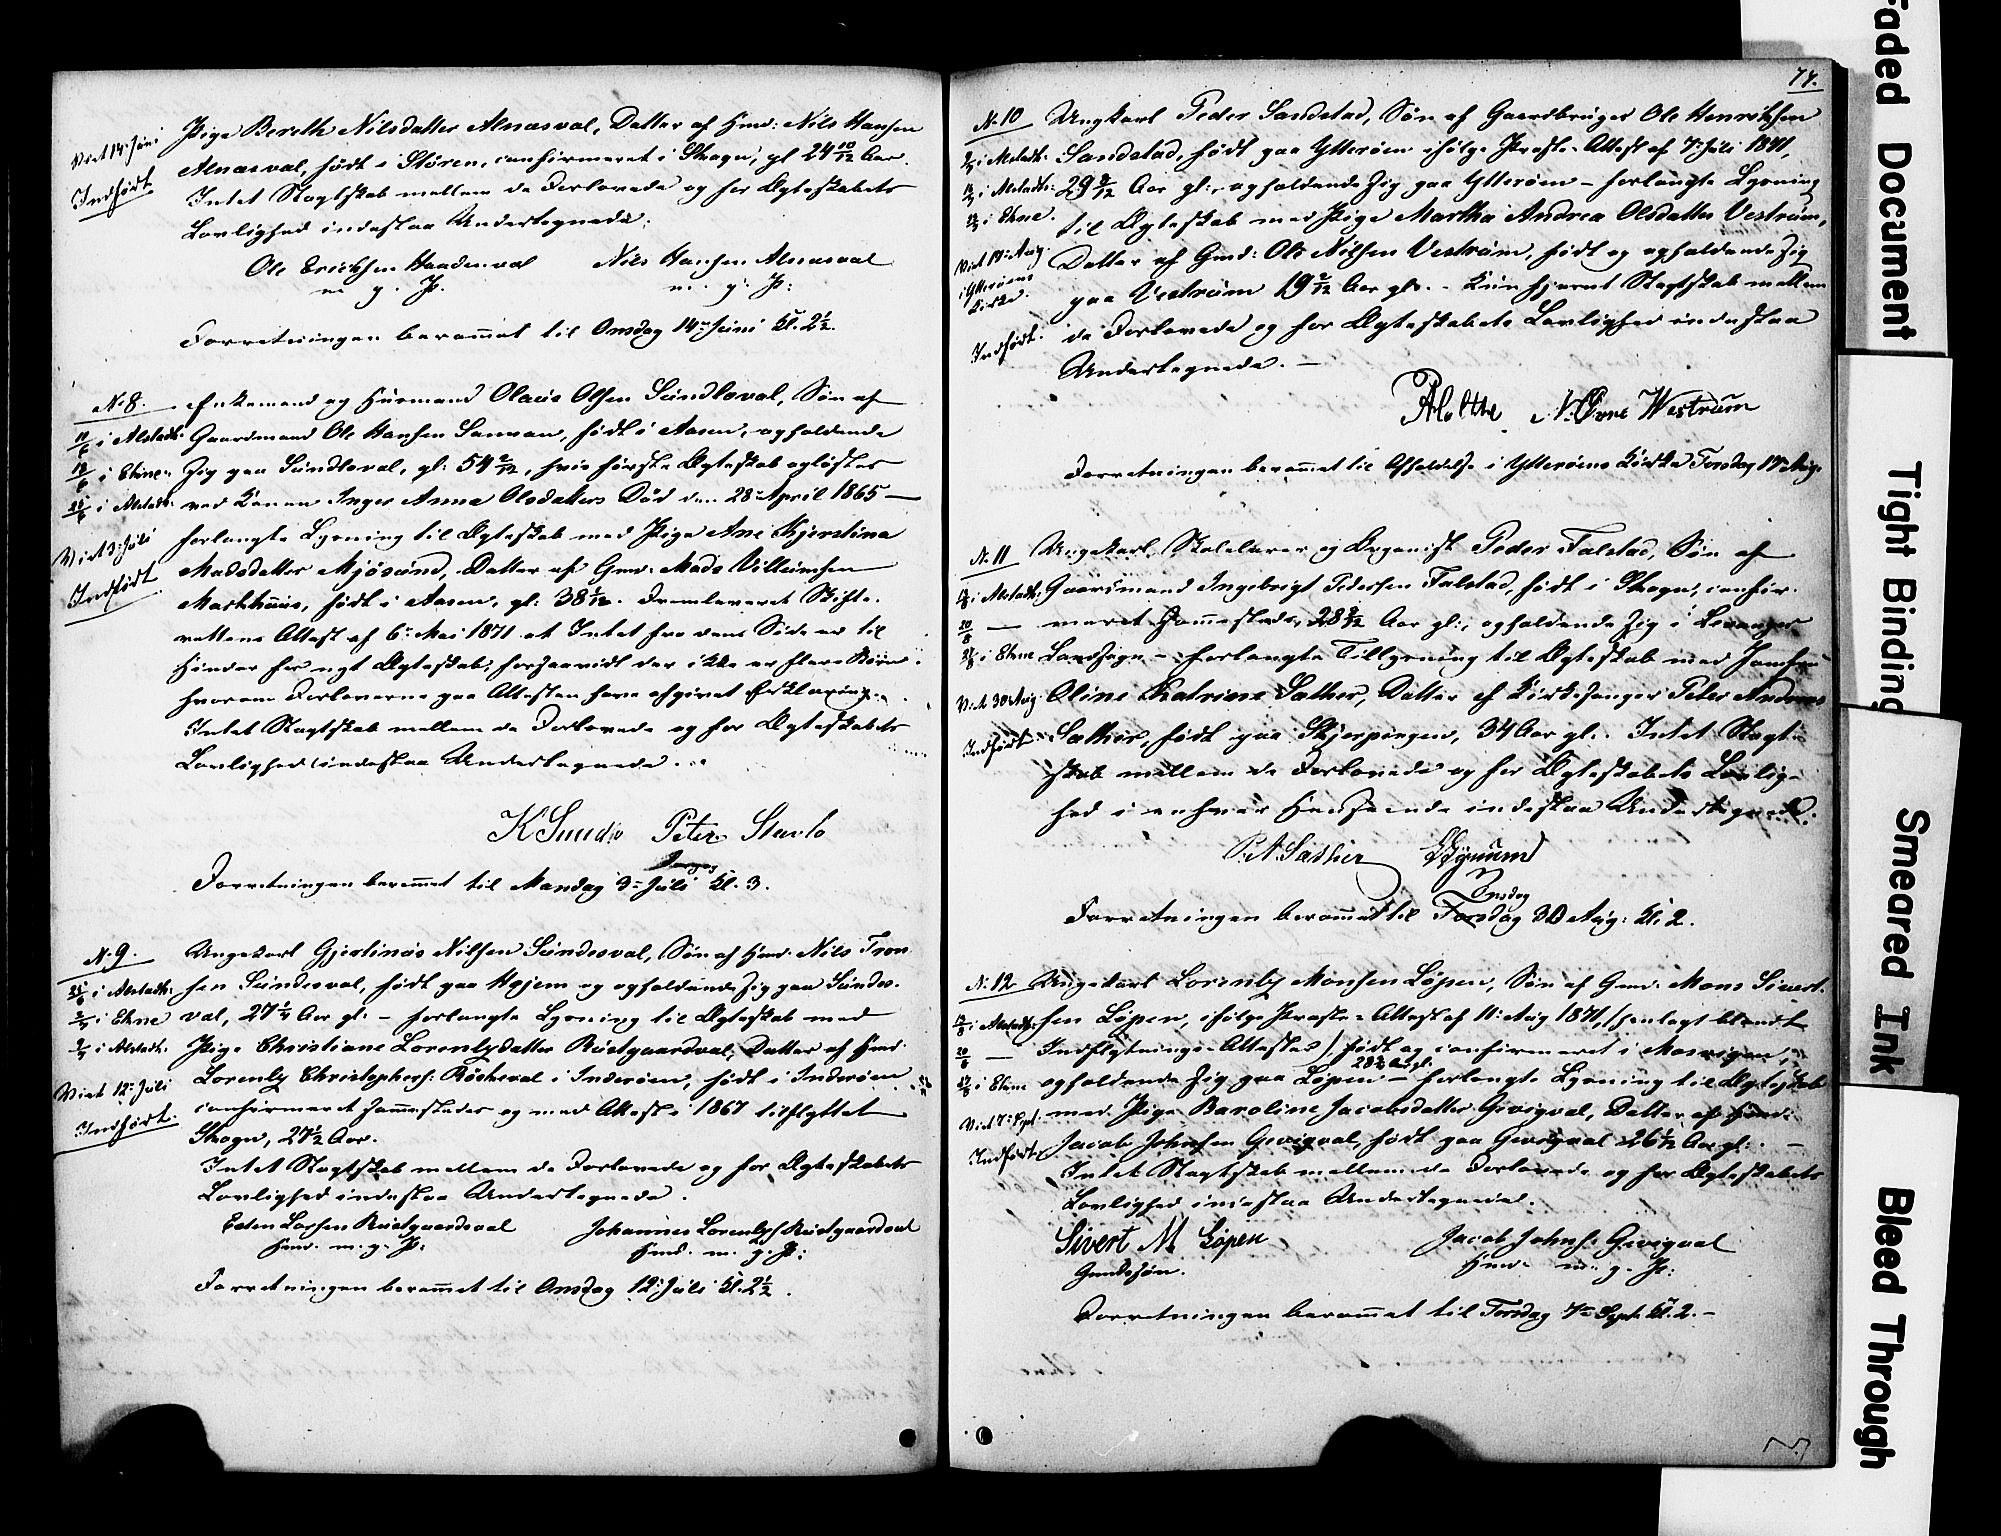 Viet 14: Juni
Indført
Pige Bereth Nilsdatter Alnæsval, Datter af Hmd: Nils Hansen
Alnæsval, født i Støren, confirmeret i Skogn, gl 24 10/12 Aar.
Intet Slægtskab mellem de Forlovede og for Ægteskabets
Lovlighed indestaa Undertegnede.
Ole Ericksen Haadenval Nils Hansen Alnæsval
m. g. P. m. g. P:
Forretningen berammet til Onsdag 14de Juni Kl. 2½.
N. 8.
11/6 i Alstadh:
18/6 i Ekne
25/6 i Alstadh:
Viet 3: Juli
Indført
Enkemand og Huusmand Olaus Olsen Sundloval, Søn af
Gaardmand Ole Hansen Sanvan, født i Aasen, opholdende
Zig paa Sundloval, gl: 54 2/12, hvis første Ægteskab opløstes
ved Konen Inger Anna Olsdatters Død den 28: April 1865 —
forlangte Lysning til Ægteskab med Pige Ane Kjerstina
Madsdatter Mjøsund, Datter af Gmd: Mads Villumsen
Markhuus, født i Aasen, gl: 38 1/12. Fremleveret Skifte-
rettens Attest af 6: Mai 1871 at Intet fra dens Side er til
Hinder for nyt Ægteskab, forsaavidt der ikke er flere Børn
hvorom Forloverne paa Attesten have afgivet Erklæring.
Intet Slægtskab mellem de Forlovede og for Ægteskabets
Lovlighed indestaa Undertegnede.
K Sundlo Peter Stavlo
Forretningen berammet til Mandag 3: Juli Kl. 3.
N. 9.
25/6 i Alstadh:
2/7 i Ekne
9/7 i Alstadh:
Viet 12: Juli
Indført.
Ungekarl Gjertinus Nilsen Sundesval, Søn af Hmd. Nils Tron
sen Sundesval, født paa Højem og opholdende Zig paa Sundes-
val, 27 ¼ Aar gl: – forlangte Lysning til Ægteskab med
Pige Christiane Lorentsdatter Rustgaardval, Datter af Hmd.
Lorents Christophers: Røskeval i Inderøen, født i Inderøen
confirmeret sammestedes og med Attest i 1867 tilflyttet
Skogn, 27 ½ Aar.
Intet Slægtskab mellem de Forlovede og for Ægteskabets
Lovlighed indestaa Undertegnede.
Esten Larsen Rustgaardsval Johannes Lorents Rustgaardval
Hmd. m. g. P: Hmd. m. g. P:
Forretningen berammet til Onsdag 12: Juli Kl. 2½.
77.
N. 10
i Alstadh:
i Alstadh:
i Ekne.
Viet 17: Aug.
i Ytterøens
Kirke.
Indført.
Ungkarl Peder Sandstad, Søn af Gaardbruger Ole Henriksen
Sandstad, født paa Ytterøen ifølge Præste-Attest af 7: Juli 1871,
29 Aar gl:, opholdende Zig paa Ytterøen – forlangte Lysning
til Ægteskab med Pige Martha Andrea Olsdatter Vestrum,
Datter af Gmd: Ole Nilsen Vestrum, født og opholdende Zig
paa Vestrum 19 Aar gl:. – Kun fjernt Slægtskab mellem
de Forlovede og for Ægteskabets Lovlighed indestaa
Undertegnede. —
N: Øvre Westrum
Forretningen berammet til Afholdelse i Ytterøens Kirke Torsdag 17 Aug.
N. 11
i Alstadh:
20/8 —
i Ekne
Viet 30 Aug
Indført
Ungekarl, Skolelærer og Organist Peder Falstad, Søn af
Gaardmand Ingebrigt Pedersen Falstad, født i Skogn, confir-
meret sammesteds, 28 Aar gl:, opholdende Zig i Levanger
Landsogn – forlangte Tillysning til Ægteskab med Jomfru
Oline Katrine Sæther, Datter af Kirkesanger Peter Andreas
Sæther, født paa Skjerpingen, 34 Aar gl:. Intet Slægt-
skab mellem de Forlovede og for Ægteskabets Lovlig-
hed i enhver Henseende indestaa Undertegnede.
P. A. Sæther
Onsdag
Forretningen berammet til Torsdag 30 Aug: Kl: 2.
N. 12
i Alstadh:
20/8 —
i Ekne
Viet 7: Sept.
Indført.
Ungekarl Lorents Monsen Løpen, Søn af Gmd: Mons Sivert-
sen Løpen, ifølge Præste-Attest af 11: Aug 1871, (henlagt blandt
Indflytnings-Attester) født og confirmeret i Mosvigen,
opholdende Zig paa Løpen – forlangte Lysning til Ægteskab
med Pige Baroline Jacobsdatter Gevigval, Datter af Hmd:
Jacob Johnsen Gevigval, født paa Gevigval 26 Aar gl:. –
Intet Slægtskab mellem de Forlovede og for Ægteskabets
Lovlighed indestaa Undertegnede.
Sivert M Løpen Jacob Johns: Gevigval
Gmdssøn. Hmd. m. g. P:
Forretningen berammet til Torsdag 7de Sept. Kl. 2. –
Faded Document
Tight Binding
Smeared Ink
Bleed Through